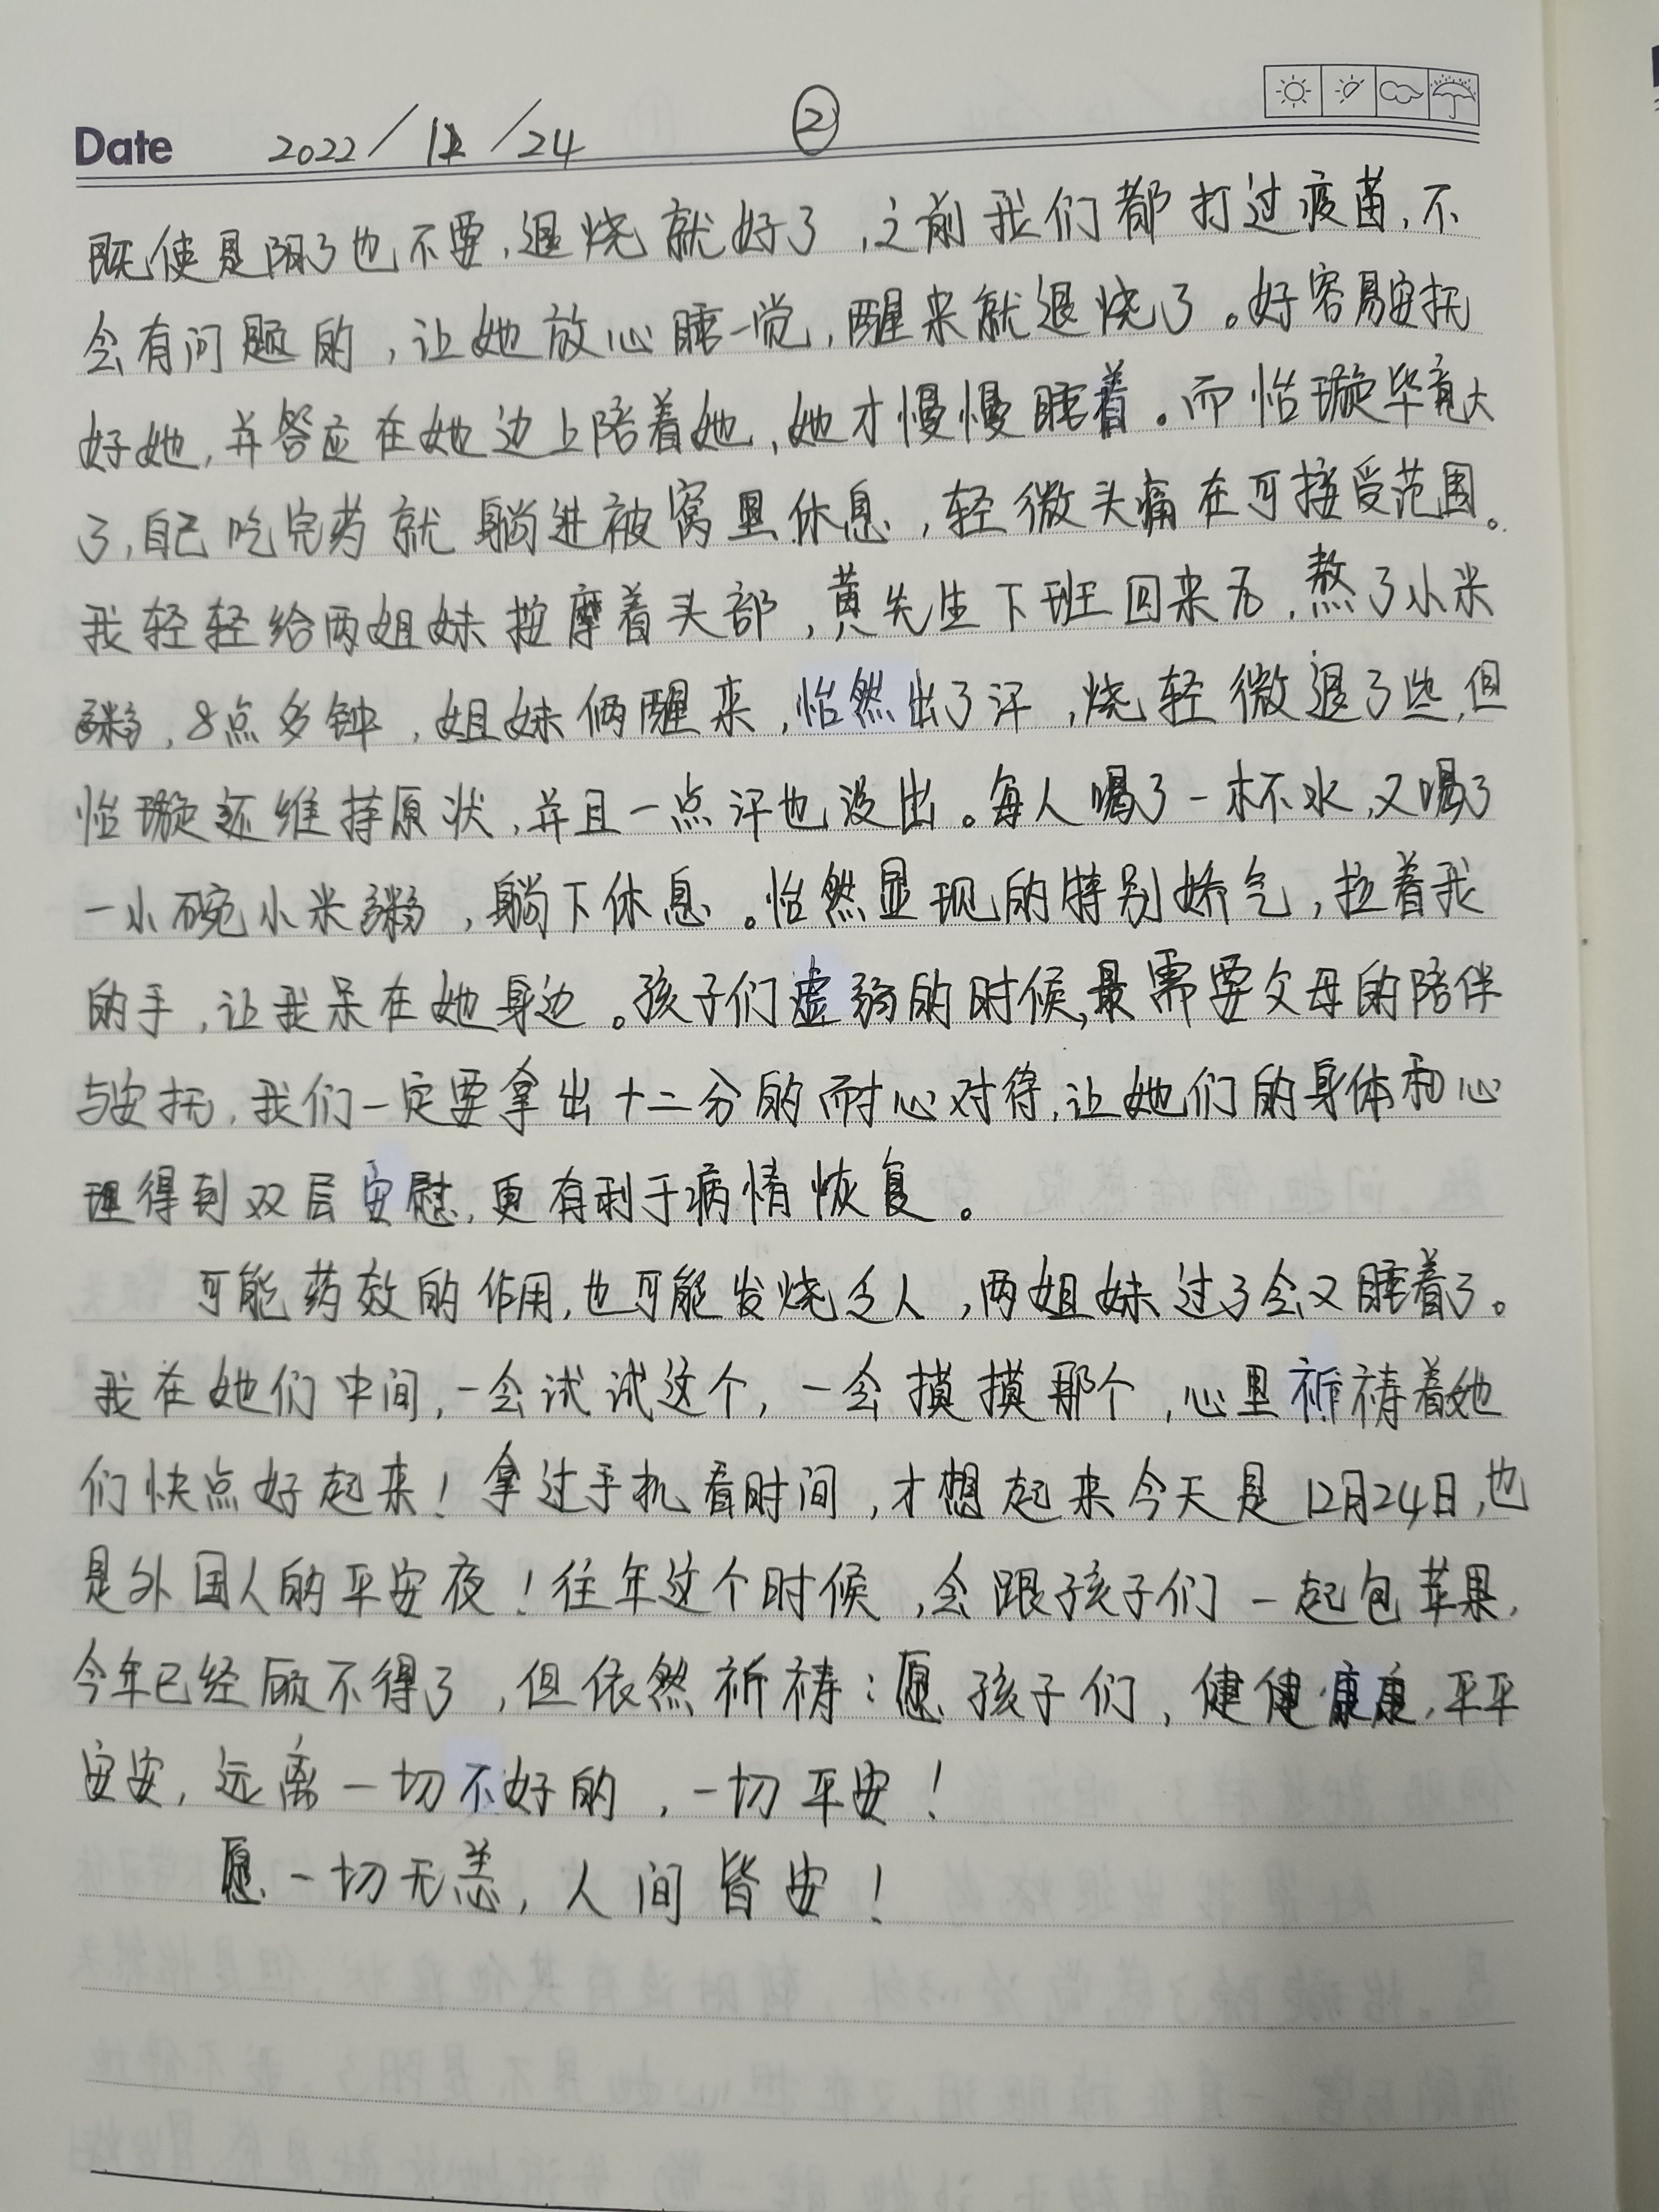 Date 2022/12/24 ②
既使是阳了也不要,退烧就好了,之前我们都打过疫苗,不
会有问题的,让她放心睡一觉,醒来就退烧了。好容易安抚
好她,并答应在她边上陪着她,她才慢慢睡着。而怡璇毕竟大
了,自己吃完药就躺进被窝里休息,轻微头痛在可接受范围。
我轻轻给两姐妹按摩着头部,黄先生下班回来后,熬了小米
粥,8点多钟,姐妹俩醒来,怡然出了汗,烧轻微退了些,但
怡璇还维持原状,并且一点汗也没出。每人喝了一杯水,又喝了
一小碗小米粥,躺下休息。怡然显现的特别娇气,拉着我
的手,让我呆在她身边。孩子们虚弱的时候,最需要父母的陪伴
与安抚,我们一定要拿出十二分的耐心对待,让她们的身体和心
理得到双层安慰,更有利于病情恢复。
可能药效的作用,也可能发烧乏人,两姐妹过了会又睡着了。
我在她们中间,一会试试这个,一会摸摸那个,心里祈祷着她
们快点好起来!拿过手机看时间,才想起来今天是12月24日,也
是外国人的平安夜!往年这个时候,会跟孩子们一起包苹果,
今年已经顾不得了,但依然祈祷:愿孩子们,健健康康,平平
安安,远离一切不好的,一切平安!
愿一切无恙,人间皆安!